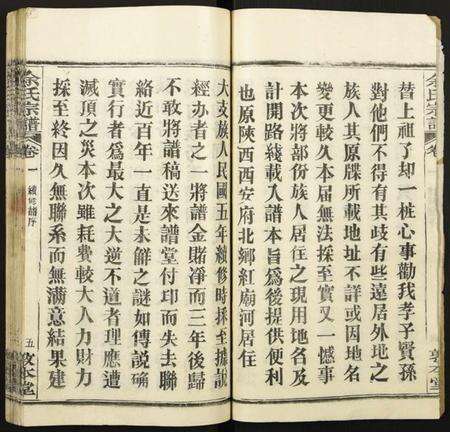 余氏宗譜
卷
替上祖了却一樁心事勸我孝子賢孫
對他們不得有其歧有些遠居外地之
族人其原牒所載地址不詳或因地名
變更較久本屆無法採至實又一憾事
本次將部份族人居住之現用地名及
計開路綫載入譜本旨爲後提供便利
也原陝西西安府北鄉紅廟河居住
敦本堂
大支族人民國五年續修時採至據説
經办者之一將譜金賭凈而三年後歸
不敢將譜稿送來譜堂付印而失去聯
絡近百年一直是未解之謎如傳説确
實行者爲最大之大逆不道者理應遭
滅頂之災本次雖耗費較大人力財力
採至終因久無聯系而無满意結果建
余氏宗譜
卷一
續修譜序
五
敦本堂